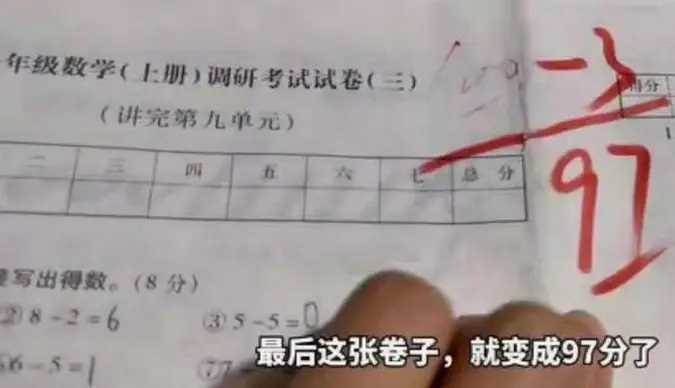 年级数学(上册)调研考试试卷(三)
(讲完第九单元)
-3
97
得分
二 三 四 五 六 七 总分
写出得数。(8分)
② 8-2=6 ③ 5-5=0
6-5=1 ⑦
最后这张卷子，就变成97分了